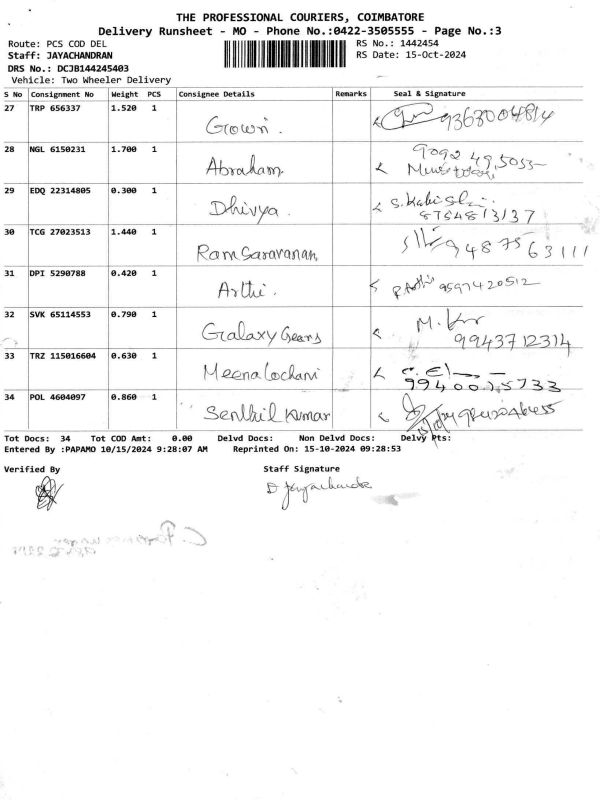 THE PROFESSIONAL COURIERS, COIMBATORE
Delivery Runsheet - MO - Phone No.:0422-3505555 - Page No.:3
Route: PCS COD DEL
RS No.: 1442454
Staff: JAYACHANDRAN
RS Date: 15-Oct-2024
DRS No.: DCJB144245403
Vehicle: Two Wheeler Delivery
S No Consignment No Weight PCS Consignee Details Remarks Seal & Signature
27 TRP 656337 1.520 1 Grown. 9363004814
28 NGL 6150231 1.700 1 Abraham
29 EDQ 22314805 0.300 1 Dhivya. 8754813137
30 TCG 27023513 1.440 1 Ram Saravanan 9487563111
31 DPI 5290788 0.420 1 Arthi. 9597420512
32 SVK 65114553 0.790 1 Galaxy Gears 9943712314
33 TRZ 115016604 0.630 1 Meena lochani
34 POL 4604097 0.860 1 Senthil Kumar
Tot Docs: 34 Tot COD Amt: 0.00 Delvd Docs: Non Delvd Docs: Delvy Pts:
Entered By :PAPAMO 10/15/2024 9:28:07 AM Reprinted On: 15-10-2024 09:28:53
Verified By Staff Signature